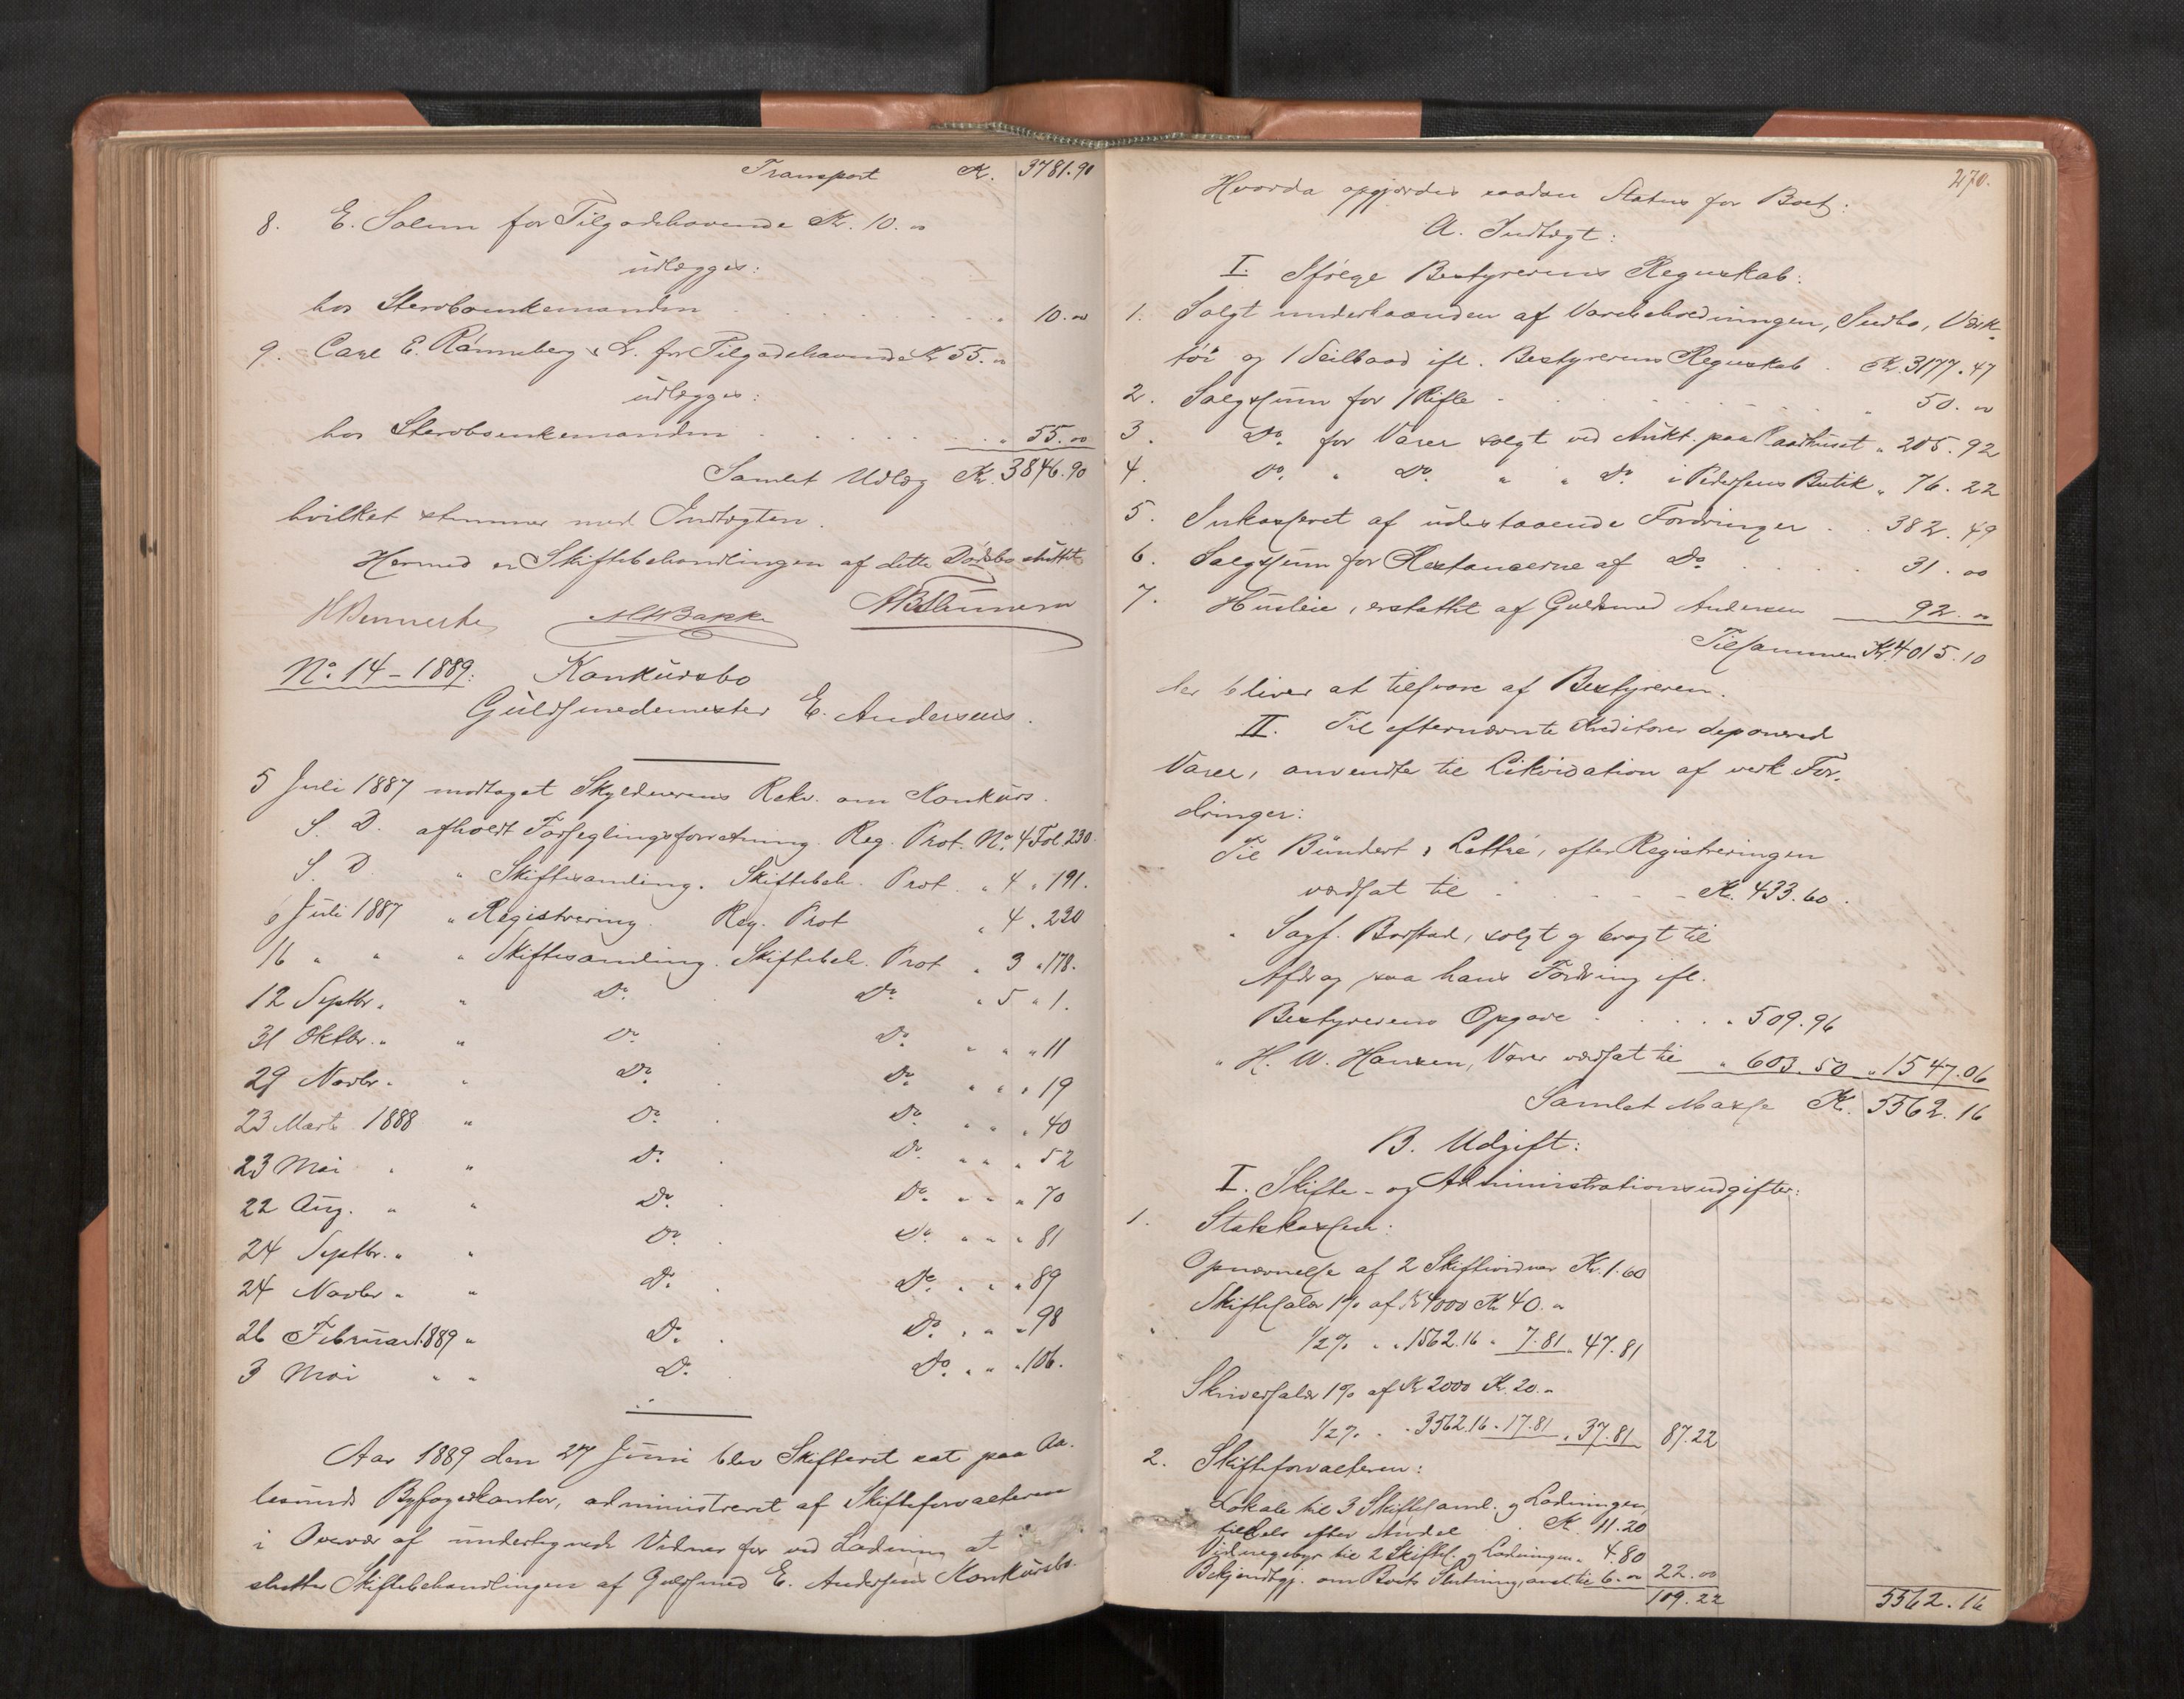 Transport Kr. 3781.90
8. E. Solem for Tilgodehavende Kr. 10.00
udlægges:
hos Stervboenkemanden . . . . . . " 10.00
9. Carl E. Rønneberg & S. for Tilgodehavende Kr 55.00
udlægges:
hos Stervboenkemanden . . . . . . " 55.00
Samlet Udlæg Kr. 3846.90
hvilket stemmer med Indtægten.
Hermed er Skiftebehandlingen af dette Dødsbo sluttet
No. 14 - 1889: Konkursbo
Guldsmedemester E. Andersens.
5 Juli 1887 modtaget Skyldnerens Rekv. om Konkurs.
S. D. afholdt Forseglingsforretning. Reg. Prot. No. 4 Fol 230.
S. D. " Skiftesamling. Skiftebeh. Prot. " 4 " 191.
6 Juli 1887 " Registrering. Reg. Prot " 4 " 230
16 " " " Skiftesamling. Skiftebeh. Prot " 3 " 178.
12 Septbr. " " Do. Do. " 5 " 1.
31 Oktbr. " " Do. Do. " " " 11
29 Novbr. " " Do. Do. " " " 19
23 Marts 1888 " Do. Do. " " " 40
23 Mai " " Do. Do. " " " 52
22 Aug. " " Do. Do. " " " 70
24 Septbr. " " Do. Do. " " " 81
24 Novbr " " Do. Do. " " " 89
26 Februar 1889 " Do. Do. " " " 98
3 Mai " " Do. Do. " " " 106.
Aar 1889 den 27 Juni blev Skifteret sat paa Aa-
lesunds Byfogedkontor, administreret af Skifteforvalteren
i Overvær af undertegnede Vidner for ved Lodning at
slutte Skiftebehandlingen af Guldsmed E. Andersens Konkursbo.
270.
Hvorda opgjordes saadan Status for Boet:
A. Indtægt:
I. Ifølge Bestyrerens Regnskab:
1. Solgt underhaanden af Varebeholdningen, Indbo, Værk-
tøi og 1 Seilbaad ifl. Bestyrerens Regnskab . Kr. 3177.47
2. Salgssum for 1 Rifle . . . . . " 50.00
3. Do. for Varer solgt ved Aukt. paa Raadhuset " 205.92
4. Do. " Do. " " Do. i Pedersens Butik " 76.22
5. Inkasseret af udestaaende Fordringer . . 382.49
6. Salgssum for Restancerne af Do. . . . . 31.00
7. Husleie, erstattet af Guldsmed Andersen 92.00
Tilsammen Kr. 4015.10
der bliver at tilsvare af Bestyreren.
II. Til efternævnte Kreditorer deponered
Varer, anvendte til Likvidation af vedk For-
dringer:
Til Bündert & Lettré, efter Registreringen
værdsat til . . . . Kr. 433.60.
" Sagf. Borstad, solgt og bragt til
Afdrag paa hans Fordring ifl.
Bestyrerens Opgave . . . . " 509.96
" H. W. Hansen, Varer værdsat til " 603.50 " 1547.06
Samlet Masse Kr. 5562.16
B. Udgift:
I. Skifte- og Administrationsudgifter:
1. Statskassen:
Opnævnelse af 2 Skiftevidner Kr. 1.60
Skiftesalær 1% af Kr 4000 Kr 40.00
1/2% " " 1562.16 " 7.81 " 47.81
Skriversalær 1% af Kr 2000 Kr. 20.00
1/2% " " 3562.16 " 17.81 " 37.81 87.22
2. Skifteforvalteren:
Lokale til 3 Skiftesaml. og Lodningen,
tildels efter Andel . . Kr. 11.20
Vidnegebyr til 2 Skiftes. og Lodningen " 4.80
Bekjendtgj. om Boets Slutning, ansl. til 6.00 22.00
109.22 5562.16